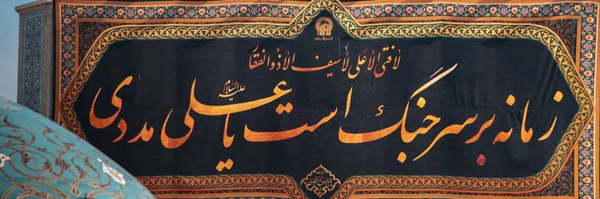 لا فتى الا على لا سيف الا ذوالفقار
زمانه بر سر جنگ است یا علی مددی
علیه‌السلام